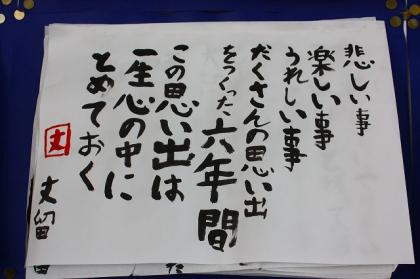 悲しい事
楽しい事
うれしい事
たくさんの思い出
をつくった六年間
この思い出は
一生心の中に
とめておく
丈
丈留